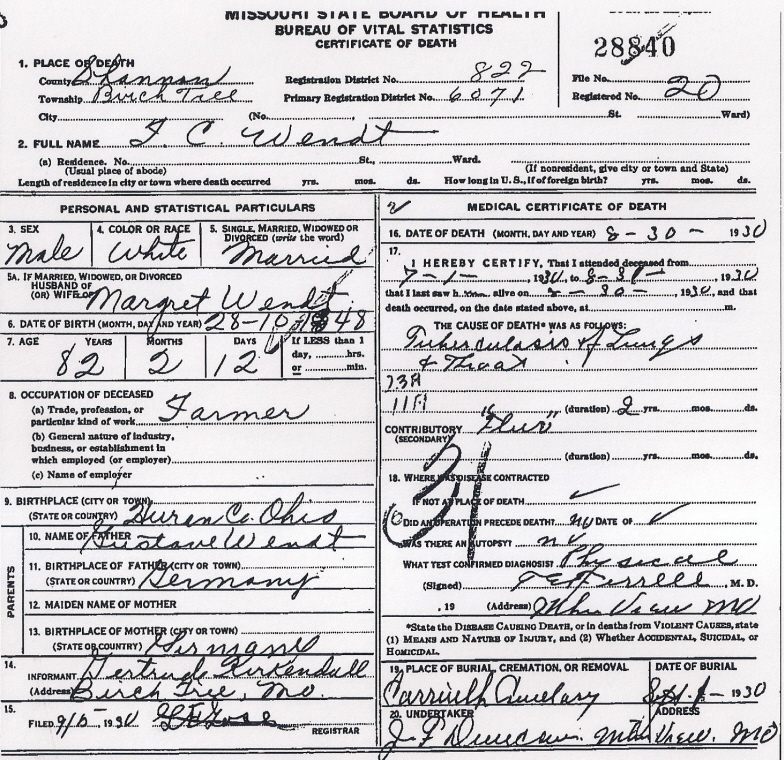 MISSOURI STATE BOARD OF HEALTH
BUREAU OF VITAL STATISTICS
CERTIFICATE OF DEATH
28840
1. PLACE OF DEATH
County Shannon Registration District No. 822 File No.
Township Birch Tree Primary Registration District No. 6071 Registered No. 20
City (No. St. Ward)
2. FULL NAME C. Wendt
(a) Residence. No. St., Ward.
(Usual place of abode) (If nonresident, give city or town and State)
Length of residence in city or town where death occurred yrs. mos. ds. How long in U.S., if of foreign birth? yrs. mos. ds.
PERSONAL AND STATISTICAL PARTICULARS
3. SEX 4. COLOR OR RACE 5. SINGLE, MARRIED, WIDOWED OR
DIVORCED (write the word)
Male White Married
5A. IF MARRIED, WIDOWED, OR DIVORCED
HUSBAND OF
(OR) WIFE OF Margret Wendt
6. DATE OF BIRTH (MONTH, DAY AND YEAR) 48
7. AGE YEARS MONTHS DAYS If LESS than 1
day, hrs.
or min.
82 2 12
8. OCCUPATION OF DECEASED
(a) Trade, profession, or
particular kind of work Farmer
(b) General nature of industry,
business, or establishment in
which employed (or employer)
(c) Name of employer
9. BIRTHPLACE (CITY OR TOWN)
(STATE OR COUNTRY) Huren Co. Ohio
PARENTS
10. NAME OF FATHER Gustave Wendt
11. BIRTHPLACE OF FATHER (CITY OR TOWN)
(STATE OR COUNTRY) Germany
12. MAIDEN NAME OF MOTHER
13. BIRTHPLACE OF MOTHER (CITY OR TOWN)
(STATE OR COUNTRY) Germany
14.
INFORMANT Gertrude Kirkendall
(Address) Birch Tree, Mo.
15.
FILED 9/5- 1930
REGISTRAR
2 MEDICAL CERTIFICATE OF DEATH
16. DATE OF DEATH (MONTH, DAY AND YEAR) 8-30- 1930
17.
I HEREBY CERTIFY, That I attended deceased from
7-1-, 1930, to 8-30-, 1930
that I last saw h alive on 8-30-, 1930, and that
death occurred, on the date stated above, at m.
THE CAUSE OF DEATH* WAS AS FOLLOWS:
Tuberculosis of Lungs
& Throat
23A
11A
(duration) 2 yrs. mos. ds.
CONTRIBUTORY "Flue"
(SECONDARY)
(duration) yrs. mos. ds.
31
18. WHERE WAS DISEASE CONTRACTED
IF NOT AT PLACE OF DEATH ✓
DID AN OPERATION PRECEDE DEATH? no DATE OF ✓
WAS THERE AN AUTOPSY? no
WHAT TEST CONFIRMED DIAGNOSIS? Physical
(Signed) M. D.
, 19 (Address) Mtn View Mo
*State the DISEASE CAUSING DEATH, or in deaths from VIOLENT CAUSES, state
(1) MEANS AND NATURE OF INJURY, and (2) Whether ACCIDENTAL, SUICIDAL, or
HOMICIDAL.
19. PLACE OF BURIAL, CREMATION, OR REMOVAL DATE OF BURIAL
Sept. 1- 1930
20. UNDERTAKER ADDRESS
J F Duncan Mtn View. Mo